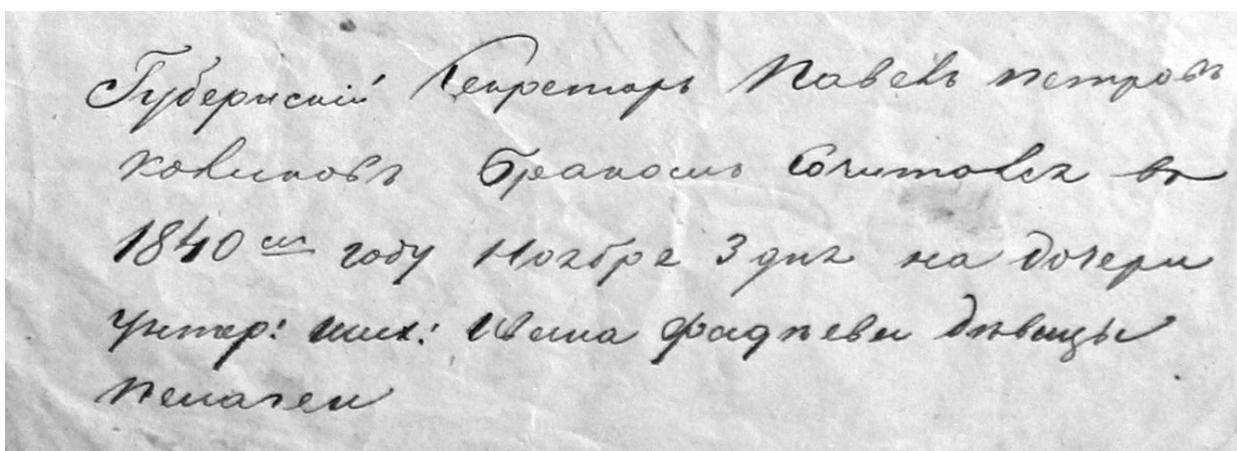 Губернскій Секретарь Павелъ петровъ
ковиновъ бракомъ Сочитовся въ
1840 мъ году Ноября 3 дня на дочери
Унтер: ших: Ивана фадпеви дѣвицы
пелагеи